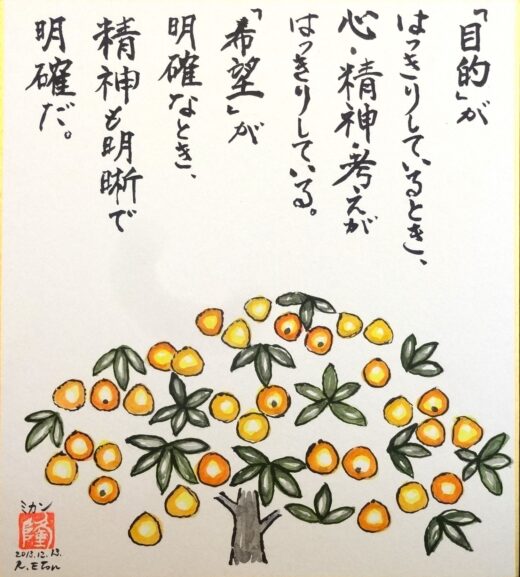 「目的」が
はっきりしているとき、
心・精神・考えが
はっきりしている。
「希望」が
明確なとき、
精神も明晰で
明確だ。
ミカン
隆
2013.12.13.